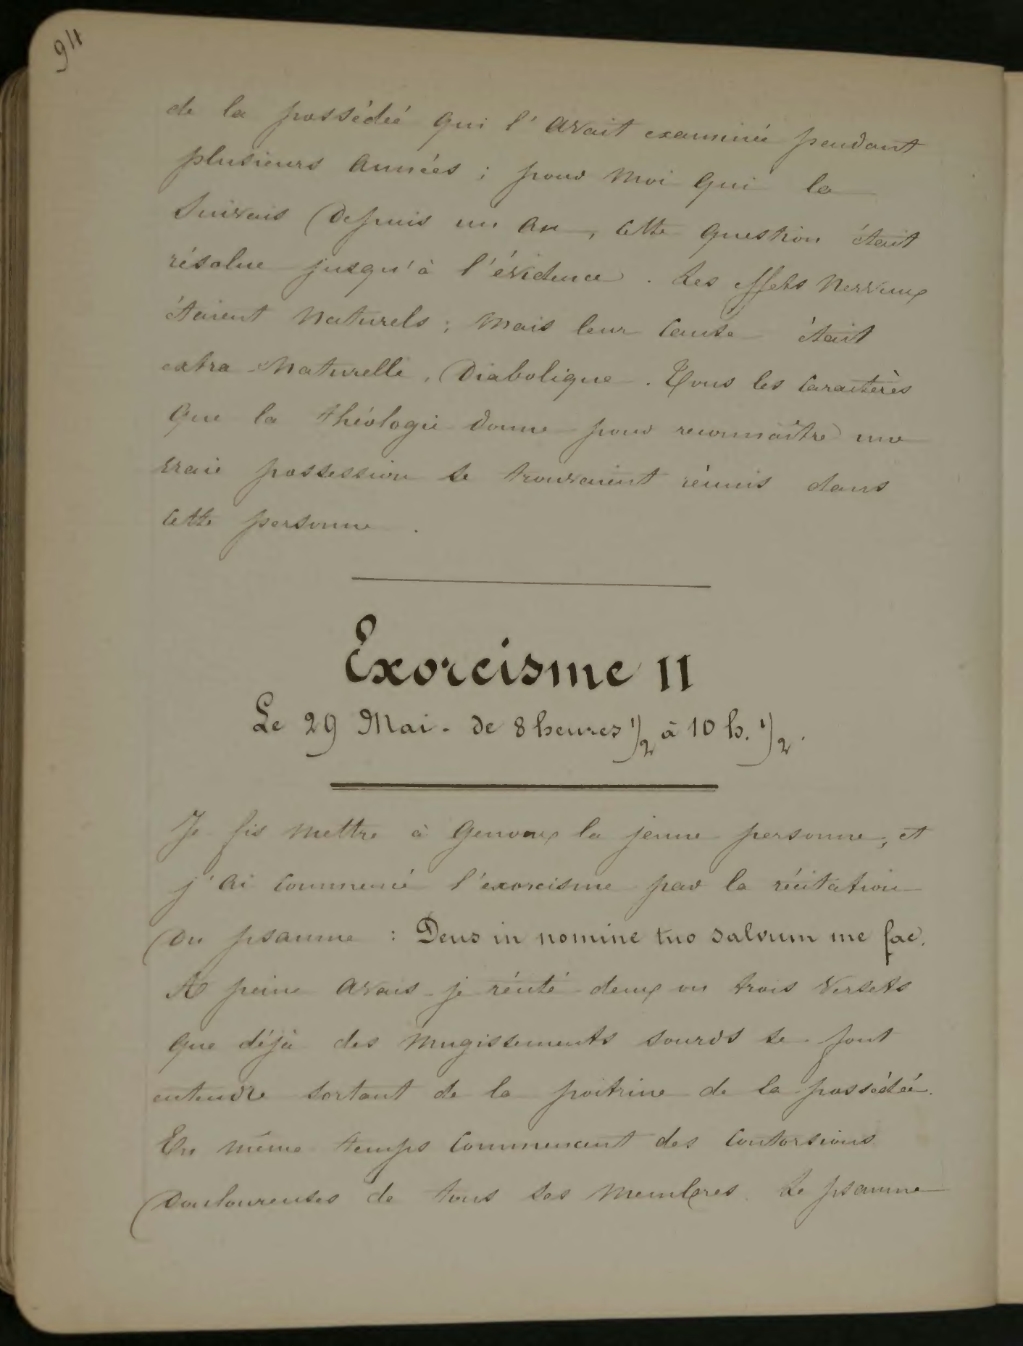 94
de la possédée qui l'avait examinée pendant
plusieurs années ; pour moi qui la
suivais depuis un an, cette question était
résolue jusqu'à l'évidence. Les effets nerveux
étaient naturels ; mais leur cause était
extra-naturelle, diabolique. Tous les caractères
que la théologie donne pour reconnaître une
vraie possession se trouvaient réunis dans
cette personne.
Exorcisme II
Le 29 Mai - de 8 heures 1/2 à 10 h. 1/2.
Je fis mettre à genoux la jeune personne, et
j'ai commencé l'exorcisme par la récitation
du psaume : Deus in nomine tuo salvum me fac.
A peine avais-je récité deux ou trois versets
que déjà des mugissements sourds se font
entendre sortant de la poitrine de la possédée.
En même temps commencent des contorsions
douloureuses de tous ses membres. Le psaume